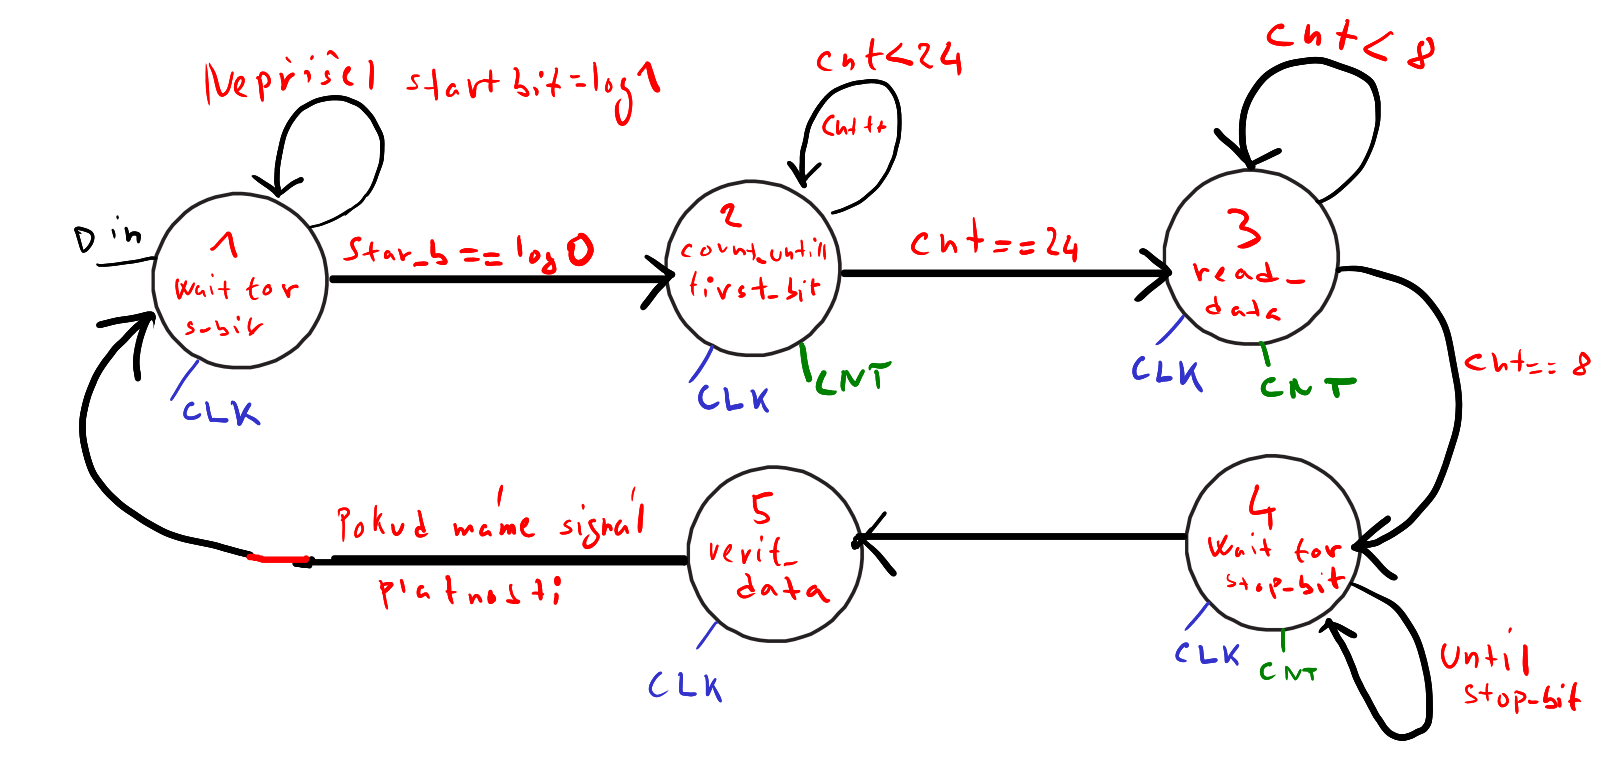 Nepřišel startbit=log1
cnt<24
cnt++
cnt<8
Din
1
wait for
s-bit
CLK
Star_b==log0
2
count_untill
first_bit
CLK
CNT
cnt==24
3
read_
data
CLK
CNT
cnt==8
4
Wait for
stop-bit
CLK
CNT
Until
stop-bit
5
verif_
data
CLK
Pokud máme signál
platnosti